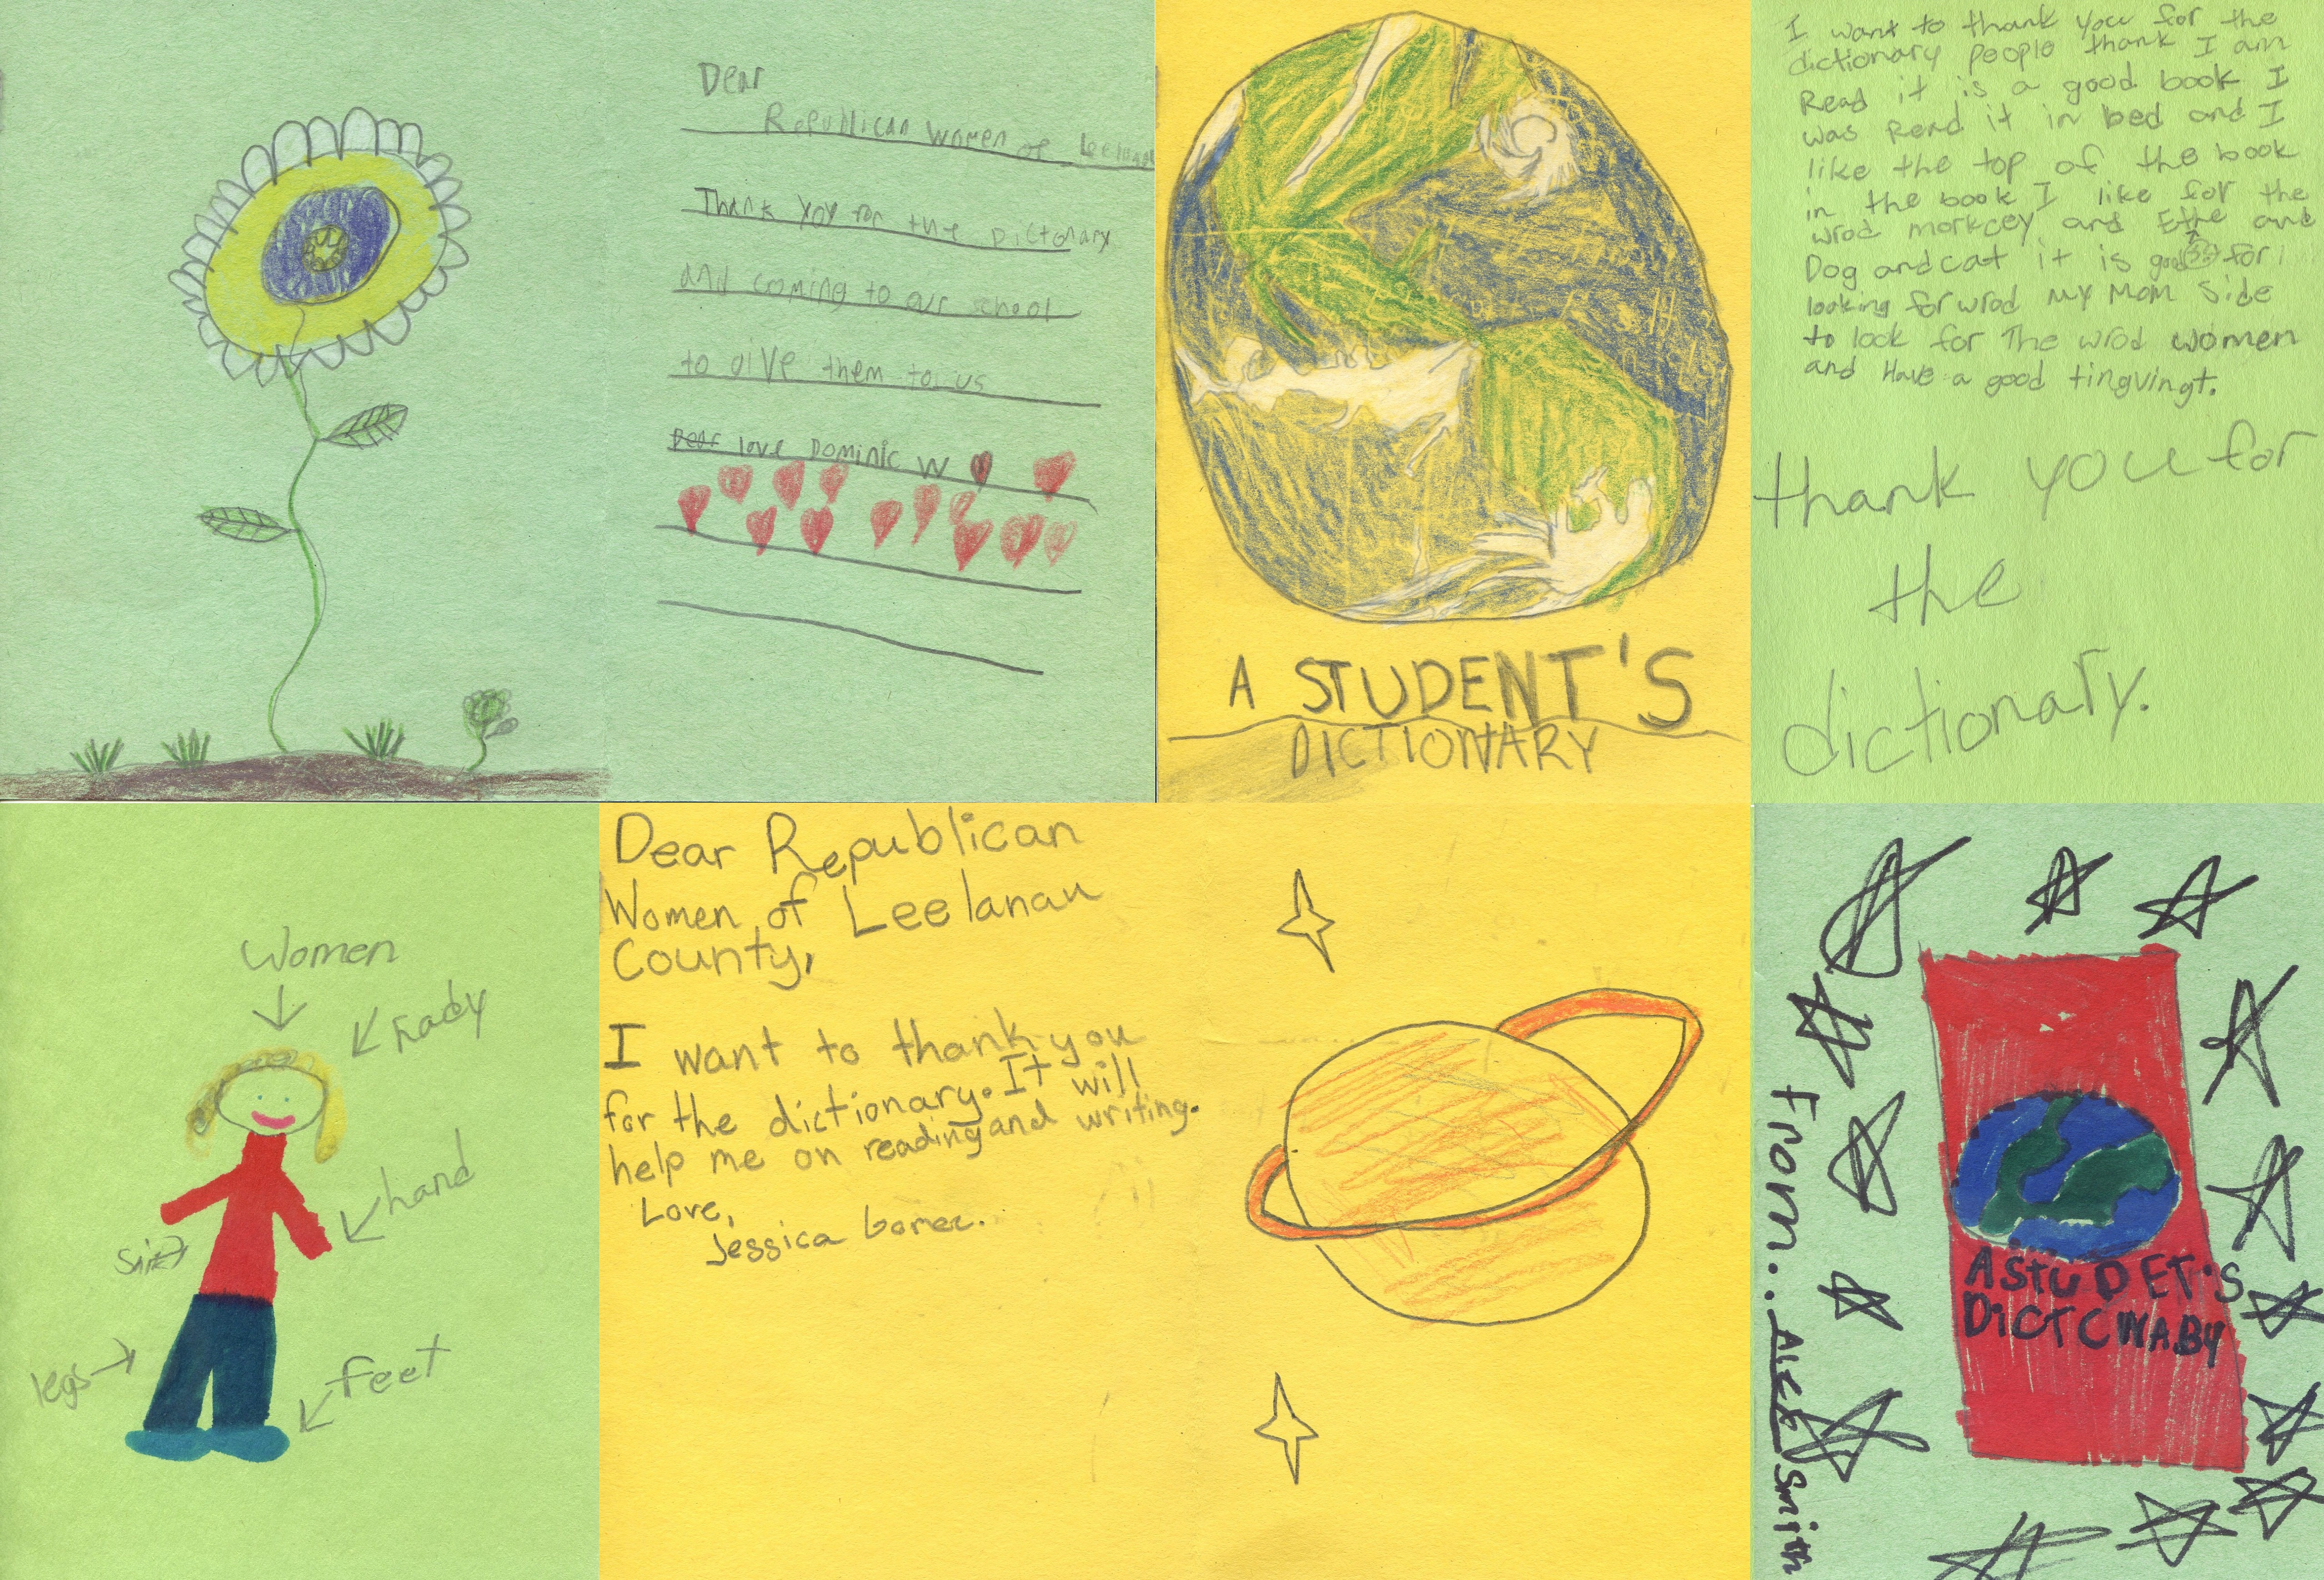 Dear
Republican Women of Leelanau
Thank yoy for the Dictonary
and coming to our school
to give them to us
Dear love Dominic W
A STUDENT'S
DICTIONARY
I want to thank you for the
dictionary people thank I am
Read it is a good book I
was Read it in bed and I
like the top of the book
in the book I like for the
wrod morkcey and and
Dog and cat it is good for
looking for wrod My Mom Side
to look for The wrod women
and Have a good tingvingt.
thank you for
the
dictionary.
Women
hand
legs
feet
Dear Republican
Women of Leelanau
County,
I want to thank you
for the dictionary. It will
help me on reading and writing.
Love,
Jessica
From... ALEX Smith
A STUDET'S
DiCTCWABY